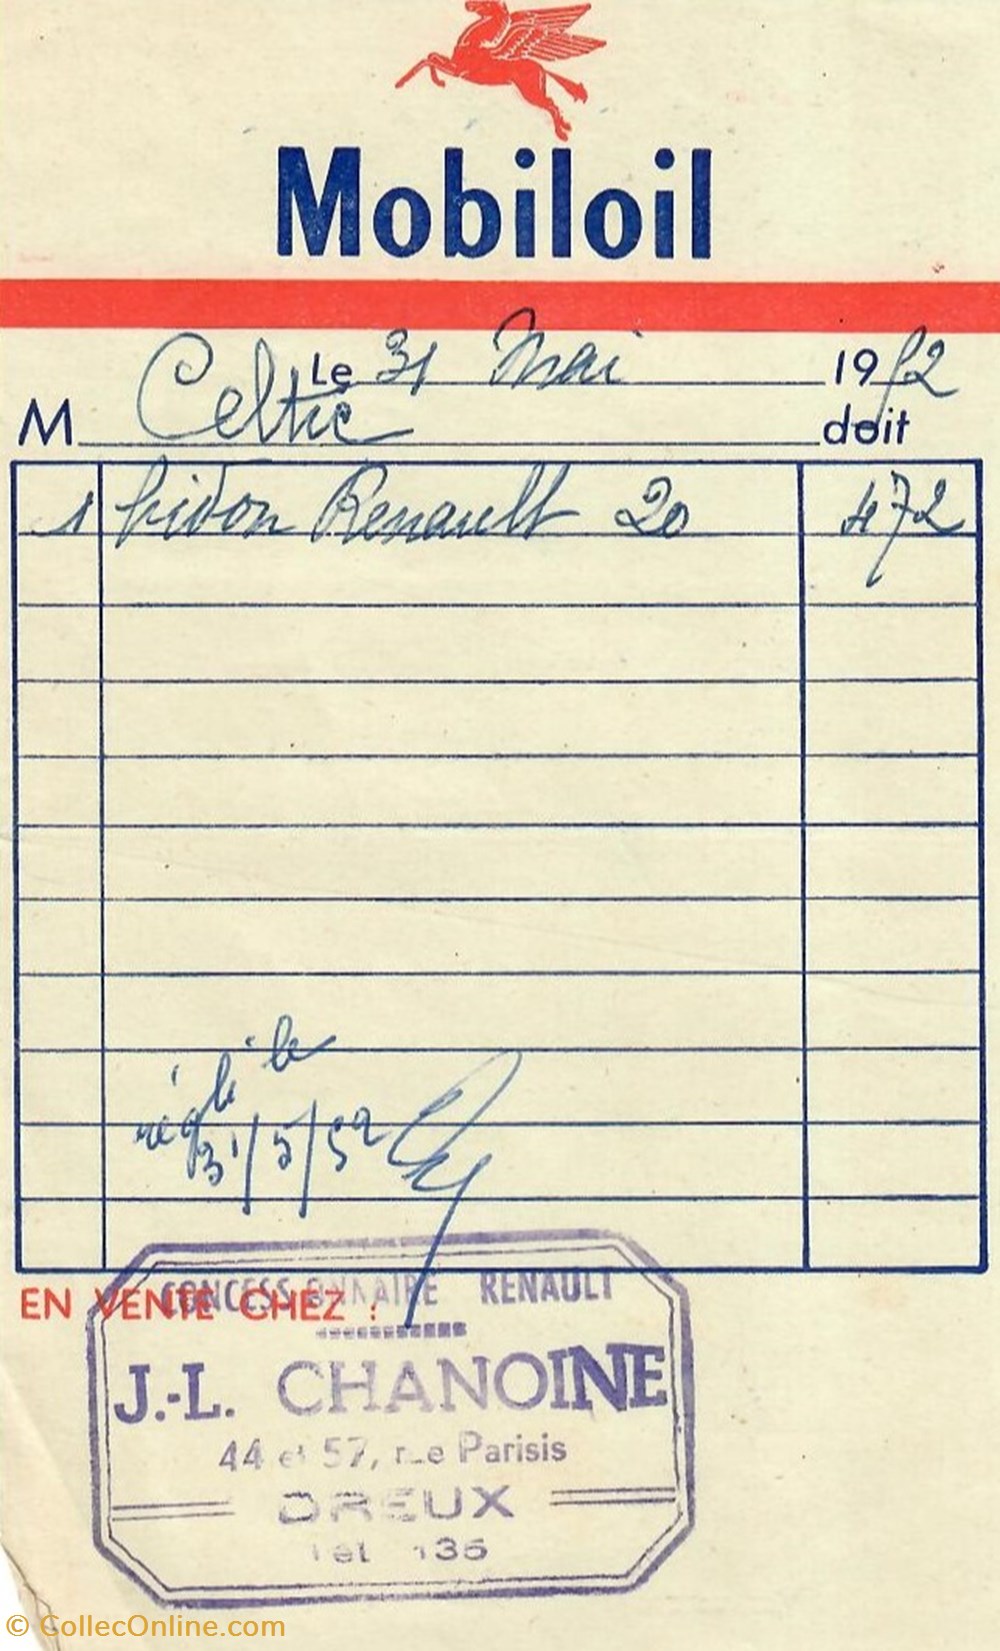 Mobiloil
Le 31 Mai 1952
M Celtic doit
1 bidon Renault 20 472
réglé le
31/5/52
EN VENTE CHEZ :
CONCESSIONNAIRE RENAULT
J.-L. CHANOINE
44 et 57, rue Parisis
DREUX
Tel 135
© CollecOnline.com